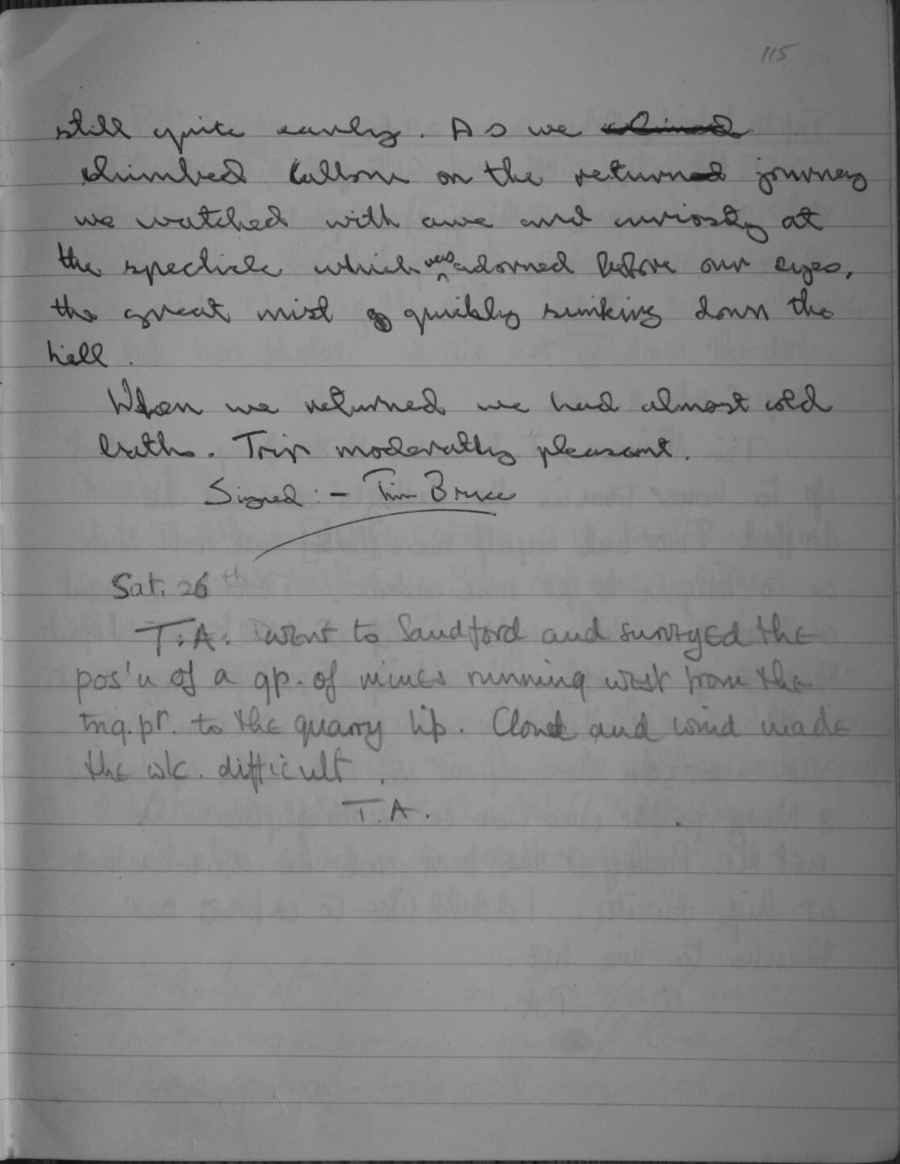 115
still quite early. As we
climbed Callow on the returned journey
we watched with awe and curiosty at
the specticle which was adorned before our eyes,
the great mist quickly sinking down the
hill.
When we returned we had almost cold
baths. Trip moderatly pleasant.
Signed :- Tim Bruce
Sat. 26th
T.A. went to Sandford and surveyed the
pos'n of a gp. of mines running west from the
Eng. pr. to the quarry lip. Cloud and wind made
the wk. difficult.
T.A.